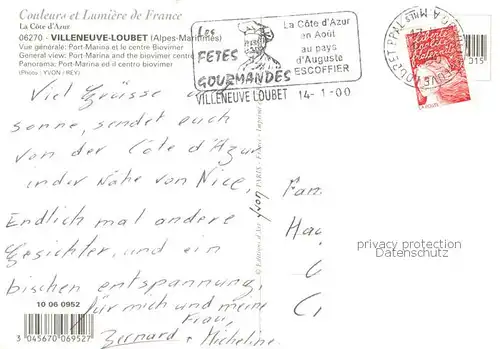 Couleurs et Lumière de France
La Côte d'Azur
06270 - VILLENEUVE-LOUBET (Alpes-Maritimes)
Vue générale: Port-Marina et le centre Biovimer
General view: Port-Marina and the biovimer centre
Panorama: Port-Marina ed il centro biovimer
(Photo : YVON / REY)
Les
FETES
GOURMANDES
La Côte d'Azur
en Août
au pays
d'Auguste
ESCOFFIER
VILLENEUVE LOUBET 14-1-00
LOUBET PPAL
A MMES
315
Liberté Égalité Fraternité
LA POSTE
Viel Grüsse
sonne, sendet euch
von der Côte d'Azur
in der Nähe von Nice,
Endlich mal andere
Gesichter, und ein
bischen entspannung,
für mich und meine
Frau,
Bernard + Micheline
© Editions d'Art yvon PARIS - France - Imprimé
Fam
Ha
privacy protection
Datenschutz
10 06 0952
3 045670 069527